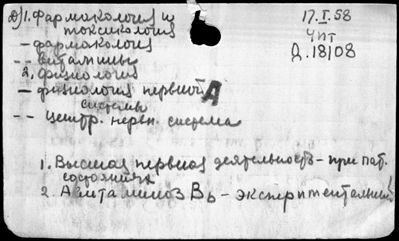 1. Фармакология и
токсикология
- фармакология
- - витамины
2. физиология
- физиология нервной
системы
- - центр. нервн. система
А
17.I.58
Чит
Д.18108
1. Высшая нервная деятельность - при пат.
состояниях
2. Авитаминоз В6 - экспериментальный